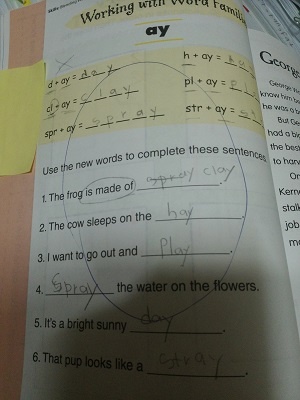 Working with Word Famil
ay
d + ay = day
h + ay =
cl + ay = clay
pl + ay = pl
spr + ay = spray
str + ay = st
Use the new words to complete these sentences
1. The frog is made of spray clay.
2. The cow sleeps on the hay.
3. I want to go out and Play.
4. Spray the water on the flowers.
5. It's a bright sunny day.
6. That pup looks like a stray.
George
George W
know him b
he was a b
But Ge
had a br
the best
to hard
On
Kern
stalk
job